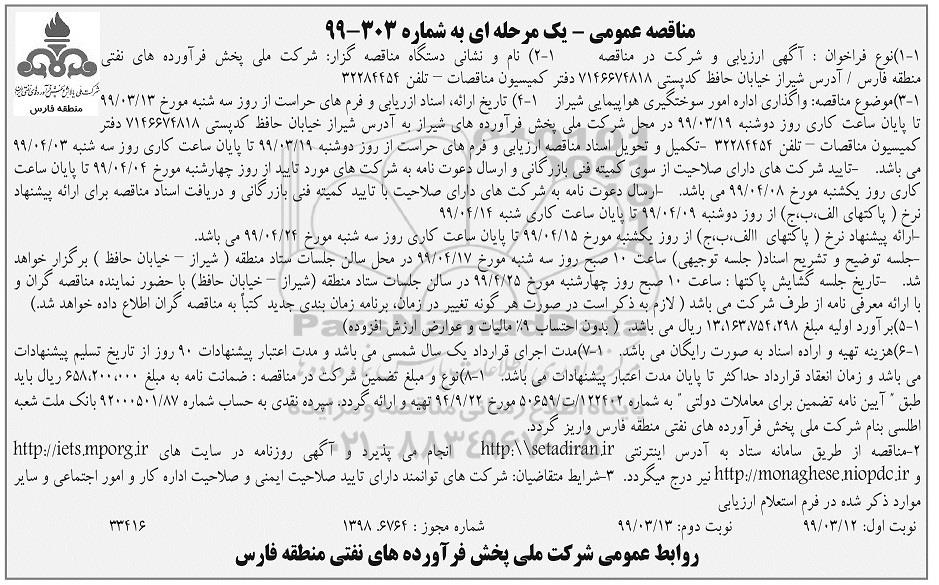 مناقصه عمومی - یک مرحله ای به شماره ۳۰۳-۹۹
شرکت ملی پالایش و پخش فرآورده های نفتی ایران
منطقه فارس
۱-۱)نوع فراخوان : آگهی ارزیابی و شرکت در مناقصه ۱-۲) نام و نشانی دستگاه مناقصه گزار: شرکت ملی پخش فرآورده های نفتی
منطقه فارس / آدرس شیراز خیابان حافظ کدپستی ۷۱۴۶۶۷۴۸۱۸ دفتر کمیسیون مناقصات - تلفن ۳۲۲۸۴۴۵۴
۱-۳)موضوع مناقصه: واگذاری اداره امور سوختگیری هواپیمایی شیراز ۱-۴) تاریخ ارائه، اسناد ازریابی و فرم های حراست از روز سه شنبه مورخ ۹۹/۰۳/۱۳
تا پایان ساعت کاری روز دوشنبه ۹۹/۰۳/۱۹ در محل شرکت ملی پخش فرآورده های شیراز به آدرس شیراز خیابان حافظ کدپستی ۷۱۴۶۶۷۴۸۱۸ دفتر
کمیسیون مناقصات - تلفن ۳۲۲۸۴۴۵۴ -تکمیل و تحویل اسناد مناقصه ارزیابی و فرم های حراست از روز دوشنبه ۹۹/۰۳/۱۹ تا پایان ساعت کاری روز سه شنبه ۹۹/۰۴/۰۳
می باشد. -تایید شرکت های دارای صلاحیت از سوی کمیته فنی بازرگانی و ارسال دعوت نامه به شرکت های مورد تایید از روز چهارشنبه مورخ ۹۹/۰۴/۰۴ تا پایان ساعت
کاری روز یکشنبه مورخ ۹۹/۰۴/۰۸ می باشد. -ارسال دعوت نامه به شرکت های دارای صلاحیت با تایید کمیته فنی بازرگانی و دریافت اسناد مناقصه برای ارائه پیشنهاد
نرخ ( پاکتهای الف،ب،ج) از روز دوشنبه ۹۹/۰۴/۰۹ تا پایان ساعت کاری شنبه ۹۹/۰۴/۱۴
-ارائه پیشنهاد نرخ ( پاکتهای االف،ب،ج) از روز یکشنبه مورخ ۹۹/۰۴/۱۵ تا پایان ساعت کاری روز سه شنبه مورخ ۹۹/۰۴/۲۴ می باشد.
-جلسه توضیح و تشریح اسناد( جلسه توجیهی) ساعت ۱۰ صبح روز سه شنبه مورخ ۹۹/۰۴/۱۷ در محل سالن جلسات ستاد منطقه ( شیراز - خیابان حافظ ) برگزار خواهد
شد. -تاریخ جلسه گشایش پاکتها : ساعت ۱۰ صبح روز چهارشنبه مورخ ۹۹/۴/۲۵ در سالن جلسات ستاد منطقه (شیراز - خیابان حافظ) با حضور نماینده مناقصه گران و
با ارائه معرفی نامه از طرف شرکت می باشد ( لازم به ذکر است در صورت هر گونه تغییر در زمان، برنامه زمان بندی جدید کتباً به مناقصه گران اطلاع داده خواهد شد.)
۱-۵)برآورد اولیه مبلغ ۱۳،۱۶۳،۷۵۴،۲۹۸ ریال می باشد. ( بدون احتساب ۹٪ مالیات و عوارض ارزش افزوده)
۱-۶)هزینه تهیه و اراده اسناد به صورت رایگان می باشد. ۱-۷)مدت اجرای قرارداد یک سال شمسی می باشد و مدت اعتبار پیشنهادات ۹۰ روز از تاریخ تسلیم پیشنهادات
می باشد و زمان انعقاد قرارداد حداکثر تا پایان مدت اعتبار پیشنهادات می باشد. ۱-۸)نوع و مبلغ تضمین شرکت در مناقصه : ضمانت نامه به مبلغ ۶۵۸،۲۰۰،۰۰۰ ریال باید
طبق " آیین نامه تضمین برای معاملات دولتی " به شماره ۱۲۲۴۰۲/ت/۵۰۶۵۹ مورخ ۹۴/۹/۲۲ تهیه و ارائه گردد. سپرده نقدی به حساب شماره ۹۲۰۰۰۵۰۱/۸۷ بانک ملت شعبه
اطلسی بنام شرکت ملی پخش فرآورده های نفتی منطقه فارس واریز گردد.
۲-مناقصه از طریق سامانه ستاد به آدرس اینترنتی http:\\setadiran.ir انجام می پذیرد و آگهی روزنامه در سایت های http://iets.mporg.ir
و http://monaghese.niopdc.ir نیر درج میگردد. ۳-شرایط متقاضیان: شرکت های توانمند دارای تایید صلاحیت ایمنی و صلاحیت اداره کار و امور اجتماعی و سایر
موارد ذکر شده در فرم استعلام ارزیابی
نوبت اول: ۹۹/۰۳/۱۲ نوبت دوم: ۹۹/۰۳/۱۳ شماره مجوز : ۱۳۹۸.۶۷۶۴ ۳۳۴۱۶
روابط عمومی شرکت ملی پخش فرآورده های نفتی منطقه فارس
ParsNamadData
پایگاه اطلاع رسانی مناقصه و مزایده
۰۲۱-۸۸۳۴۹۶۷۰-۵